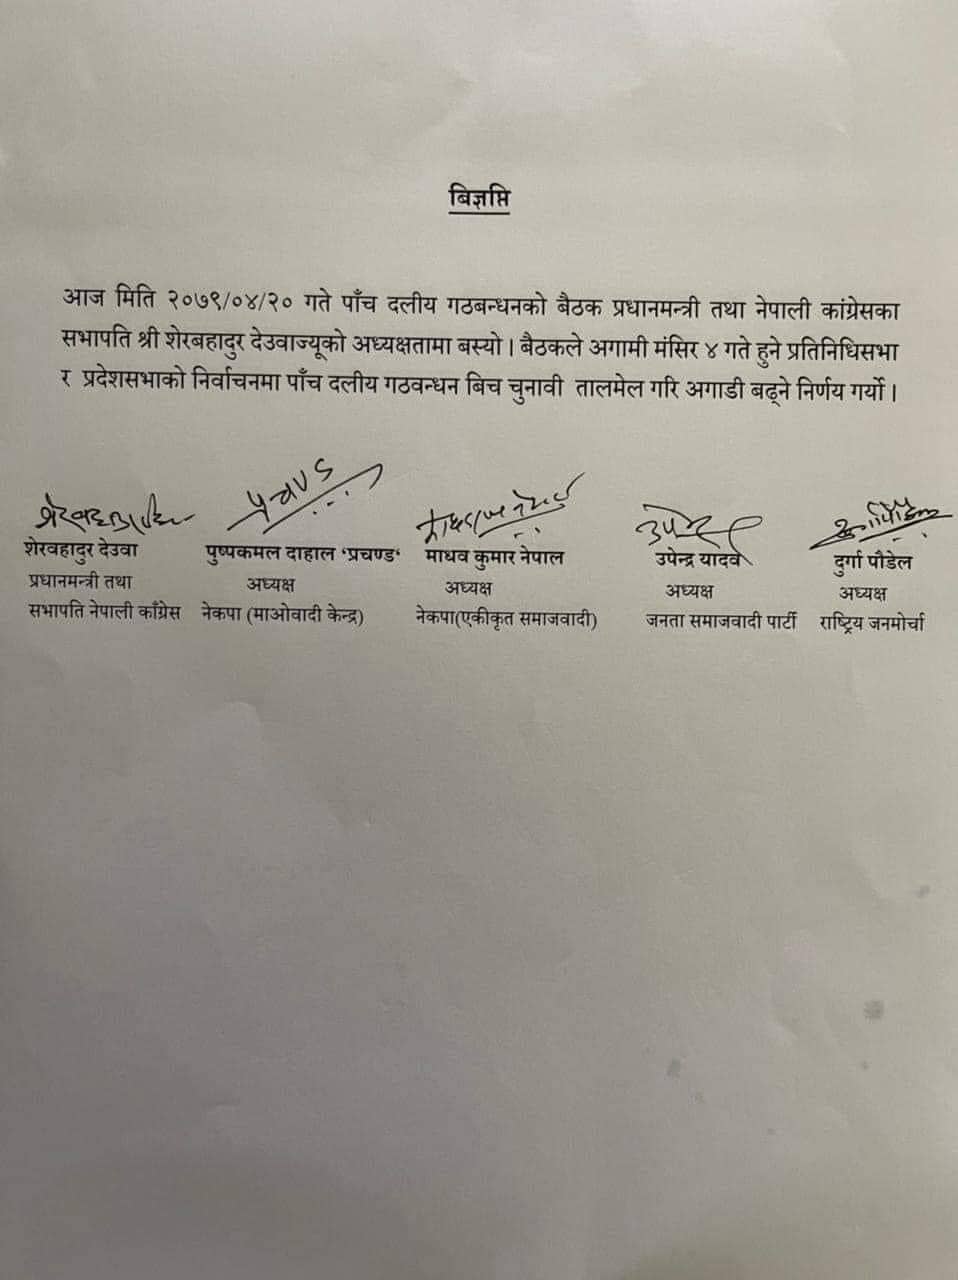 बिज्ञप्ति
आज मिति २०७९/०४/२० गते पाँच दलीय गठबन्धनको बैठक प्रधानमन्त्री तथा नेपाली कांग्रेसका
सभापति श्री शेरबहादुर देउवाज्यूको अध्यक्षतामा बस्यो । बैठकले अगामी मंसिर ४ गते हुने प्रतिनिधिसभा
र प्रदेशसभाको निर्वाचनमा पाँच दलीय गठवन्धन बिच चुनावी तालमेल गरि अगाडी बढ्ने निर्णय गर्यो ।
शेरवहादुर देउवा पुष्पकमल दाहाल ‘प्रचण्ड‘ माधव कुमार नेपाल उपेन्द्र यादव दुर्गा पौडेल
प्रधानमन्त्री तथा अध्यक्ष अध्यक्ष अध्यक्ष अध्यक्ष
सभापति नेपाली काँग्रेस नेकपा (माओवादी केन्द्र) नेकपा(एकीकृत समाजवादी) जनता समाजवादी पार्टी राष्ट्रिय जनमोर्चा